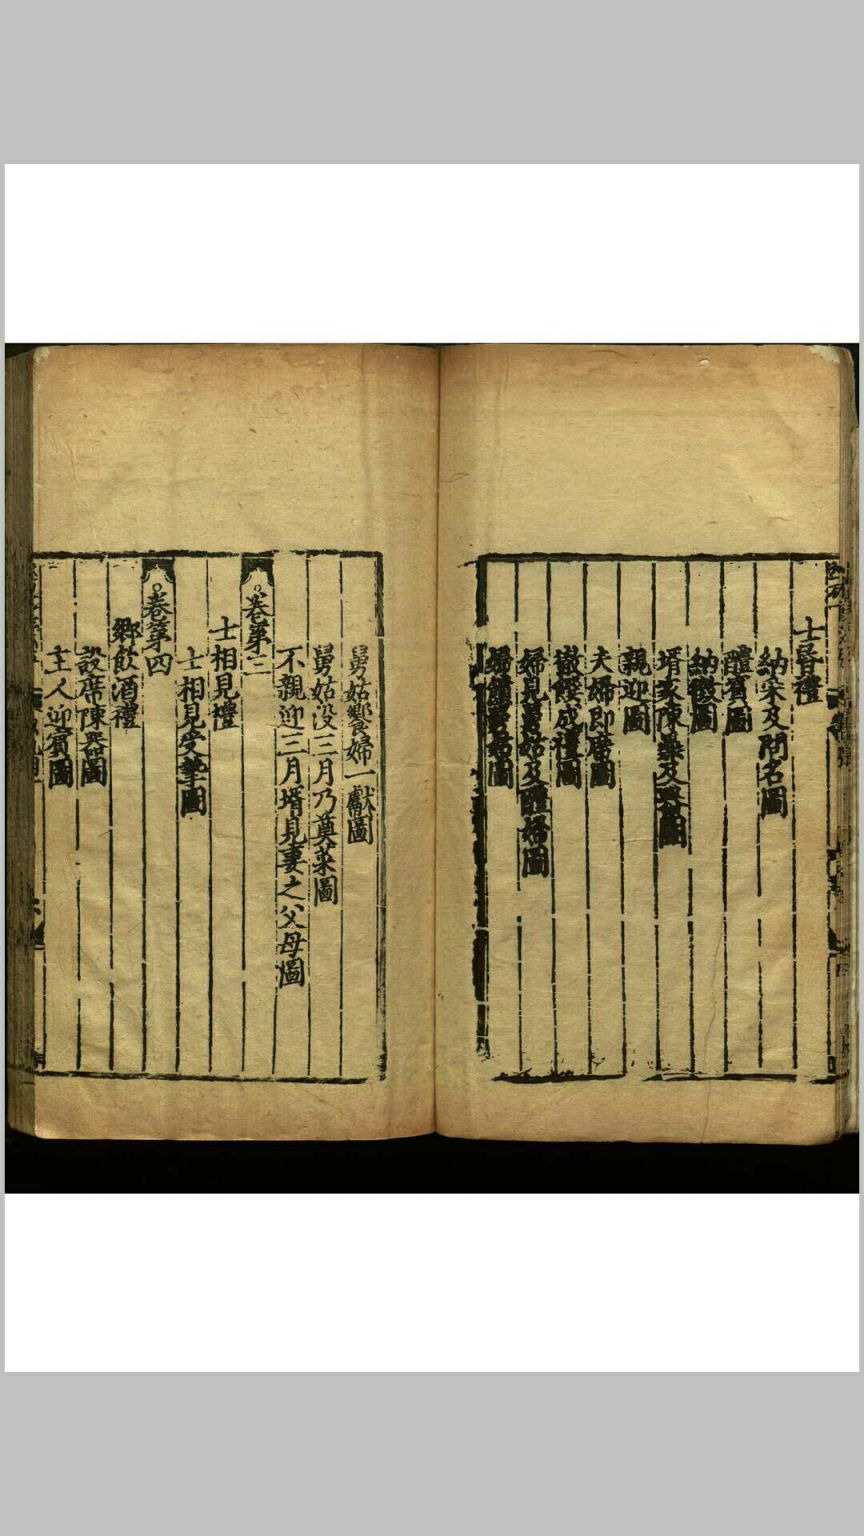 士昏禮
納采及問名圖
醴賓圖
納徵圖
壻家陳藥及興圖
親迎圖
夫婦即席圖
徹饌成禮圖
婦見舅姑及醴婦圖
婦饋舅姑圖
舅姑饗婦一獻圖
舅姑没三月乃奠菜圖
不親迎三月壻見妻之父母圖
卷第三
士相見禮
士相見受摯圖
卷第四
鄉飲酒禮
設席陳器圖
主人迎賓圖